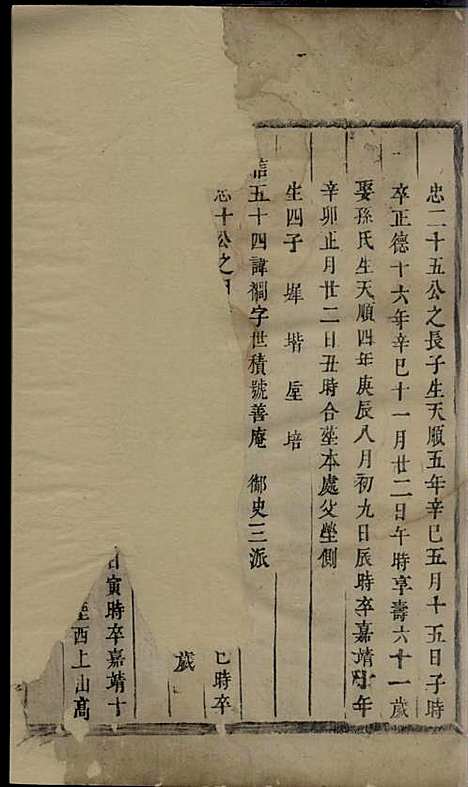 忠二十五公之長子生天順五年辛巳五月十五日子時
卒正德十六年辛巳十一月廿二日午時享壽六十一歲
娶孫氏生天順四年庚辰八月初九日辰時卒嘉靖十年
辛卯正月廿二日丑時合塟本處父塋側
生四子 墀 堦 垕 培
信五十四諱襉字世積號善庵 御史三派
忠十公之
巳時卒
歲
日寅時卒嘉靖十
西上山高